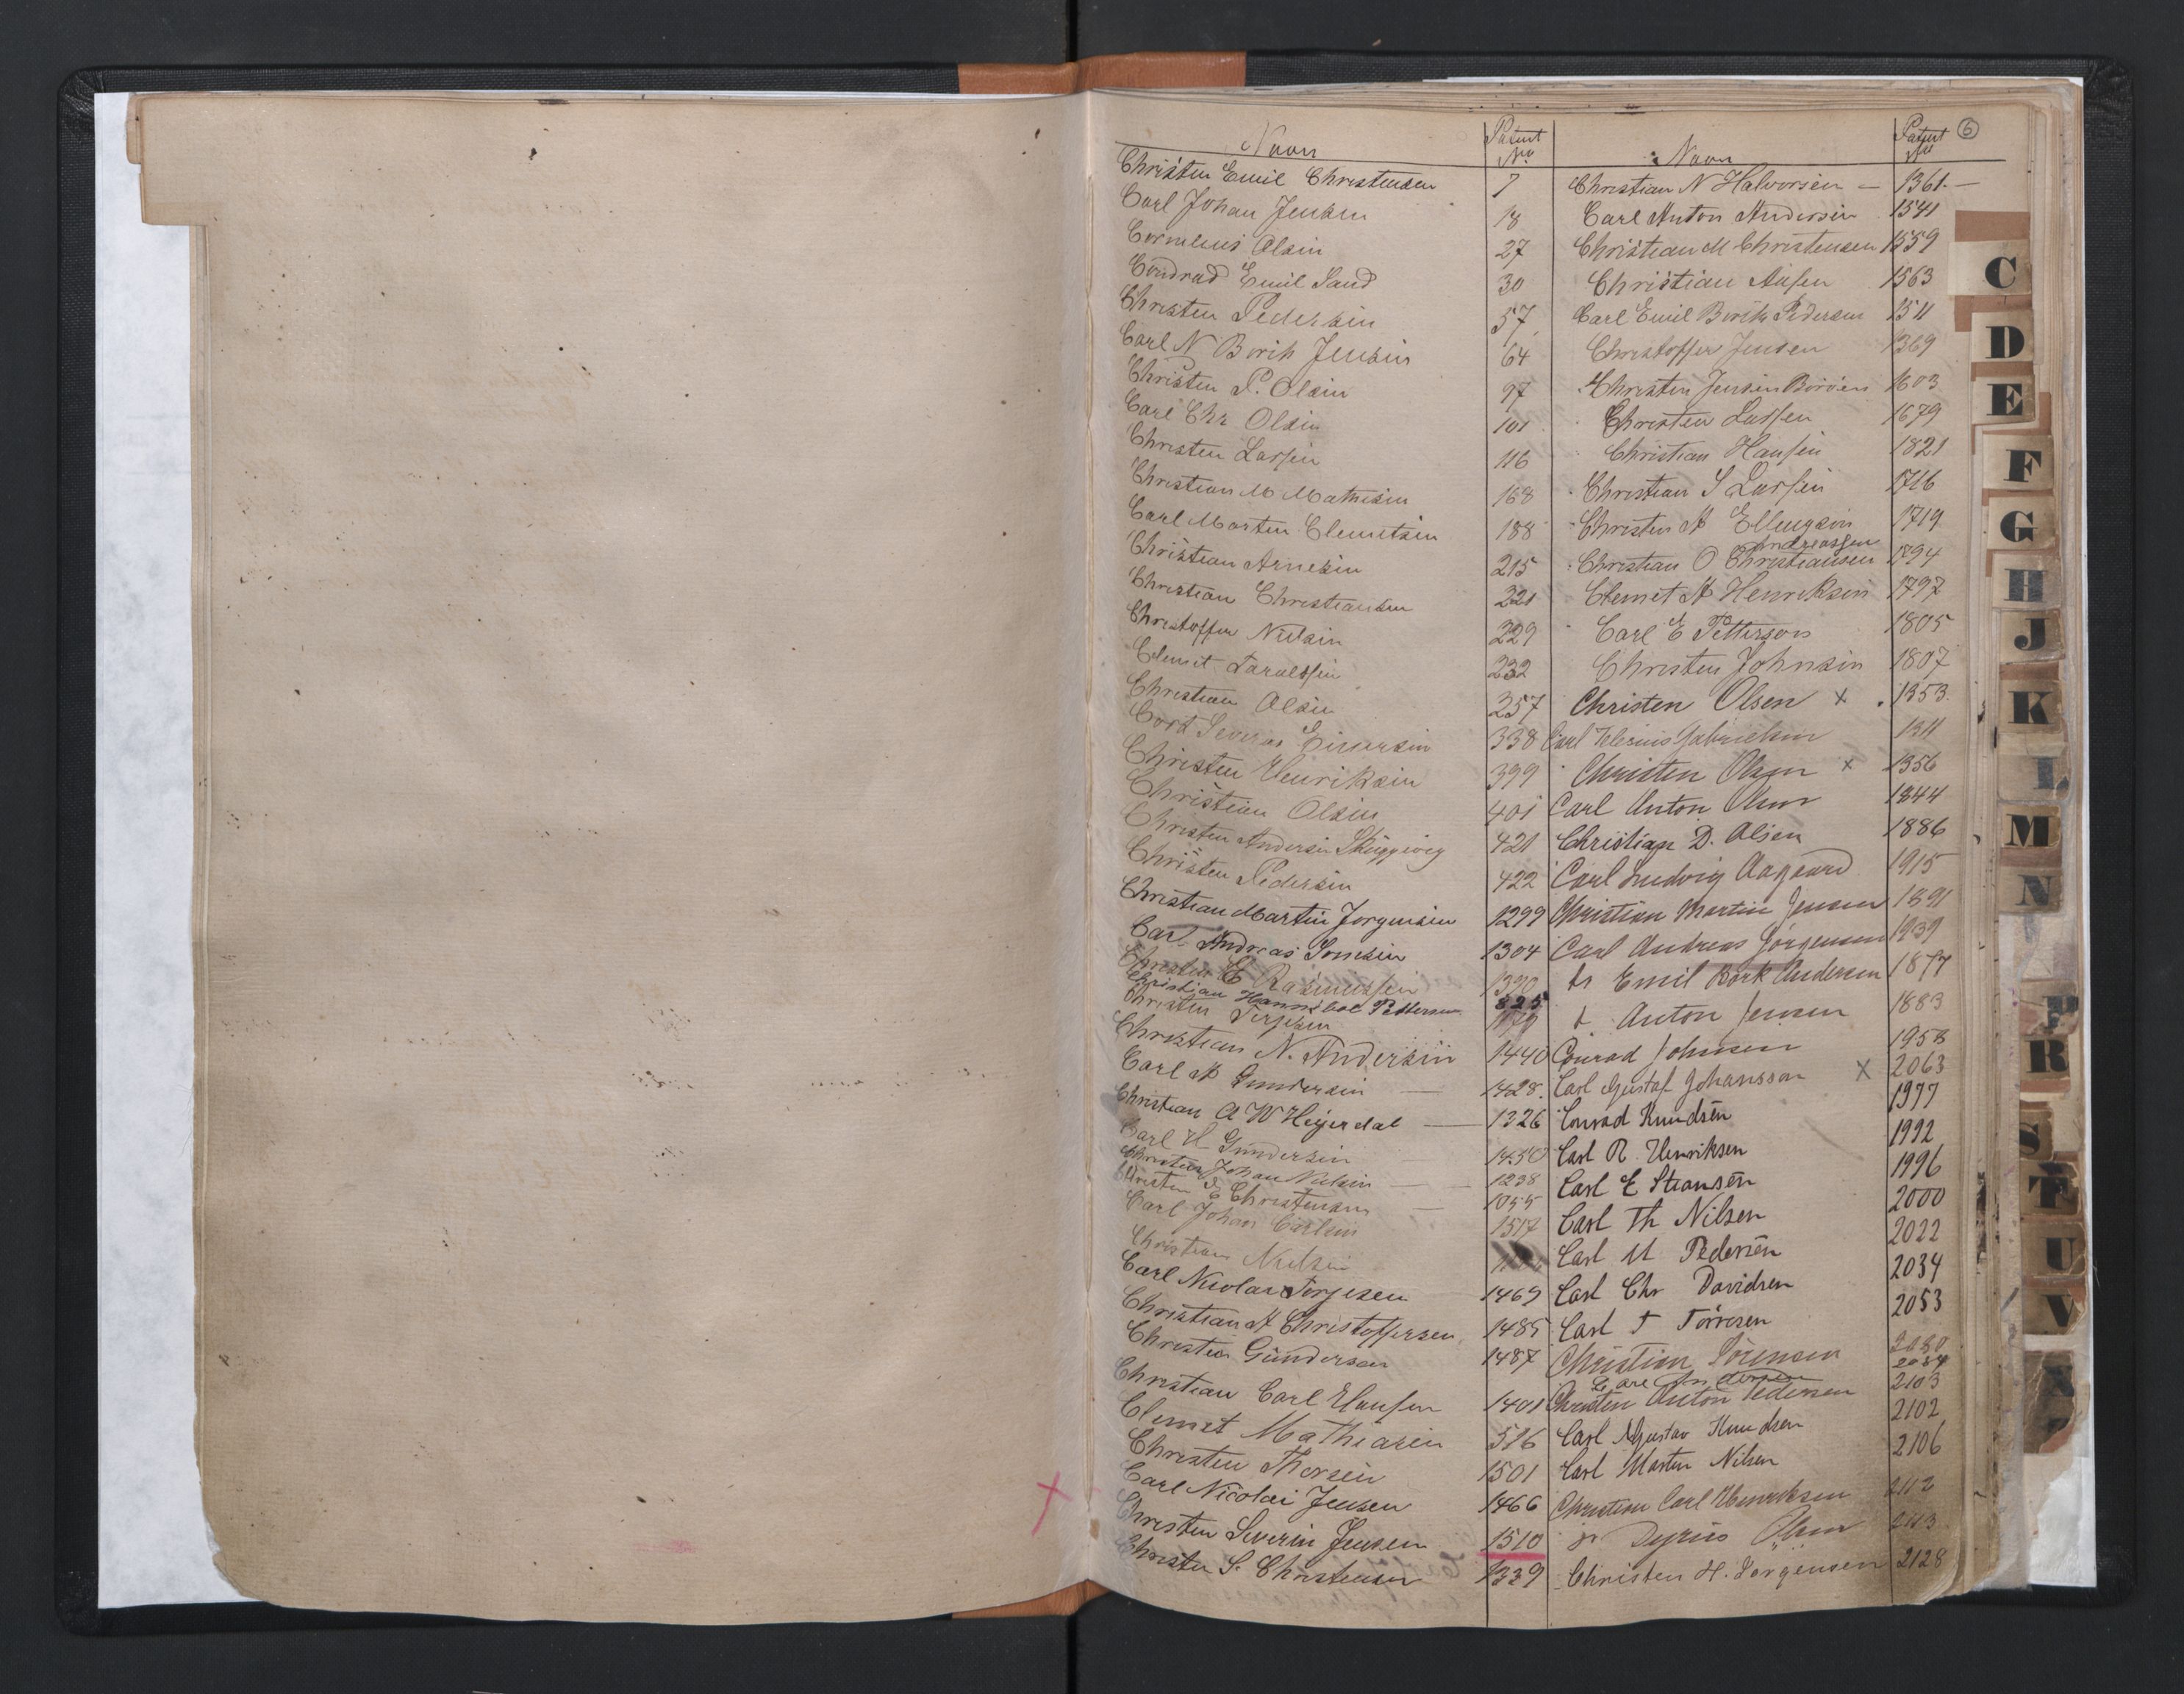 6
Navn Patent No
Christen Emil Christensen 7
Carl Johan Jensen 18
Cornelius Olsen 27
Condrad Emil Sand 30
Christen Pedersen 57
Carl N Borik Jensen 64
Christen P. Olsen 97
Carl Chr Olsen 101
Christen Larsen 116
Christian M Mathisen 168
Carl Morten Clemetsen 188
Christian Arnesen 215
Christian Christiansen 221
Christoffer Nielsen 229
Clemet Taraldsen 232
Christian Olsen 257
Cort Severin Einersen 338
Christen Henriksen 399
Christian Olsen 401
Christen Andersen 421
Christen Pedersen 422
Christian Martin Jorgensen 1299
Carl Andreas 1304
Christen E Rasmussen 1390
Christian Hannibal Pettersen 825
Christen Terjesen
Christian N. Andersen 1440
Carl A Gundersen — 1428.
Christian A W Heyerdal — 1326
Carl H Gundersen 1450
Christian Johan Nielsen — 1238
Christen E Christensen — 1055
Carl Johan Carlsen 1517
Christian Nielsen
Carl Nicolai Torjesen 1469
Christian A Christoffersen 1485
Christen Gundersen 1487
Christian Carl Hansen 1401
Clemet Mathiasen 516
Christen Thorsen 1501
Carl Nicolai Jensen 1466
Christen Severin Jensen 1510
Christen S. Christensen 1339
Navn Patent No
Christian N Halvorsen — 1361. —
Carl Anton Andersen 1541
Christian M Christensen 1559
Christian Aasen 1563
Carl Emil Borik Pedersen 1511
Christoffer Jensen 1369
Christen Jensen Boröen 1603
Christen Larsen 1679
Christian Hansen 1821
Christian S Larsen 1716
Christen A Ellingsen 1719
Andreassen
Christian O Christiansen 1794
Clemet A Henriksen 1797
Carl E Petterson 1805
Christen Johnsen 1807
Christen Olsen x . 1353.
Carl Gabrielsen 1311
Christen Olsen x 1356
Carl Anton Olsen 1844
Christian D. Olsen 1886
Carl Ludvig Aagaard 1915
Christian Martin Jensen 1891
Carl Andreas Jörgensen 1939
Emil Bork Andersen 1877
Anton Jensen 1883
Conrad Johnsen 1958
Carl Gustaf Johansson X 2063
Conrad Knudsen 1977
Carl R. Henriksen 1992
Carl E Steansen 1996
Carl Th Nilsen 2000
Carl M Pedersen 2022
Carl Chr Davidsen 2034
Carl T Törresen 2053
Christian Sörensen 2080
Carl Andersen 2084
Christen Anton Pedersen 2103
Carl Gustav Knudsen 2102
Carl Morten Nilsen 2106
Christian Carl Henriksen 2112
Dyrius Olsen 2113
Christen H. Jörgensen 2128
C
D
E
F
G
H
J
K
L
M
N
P
R
S
T
U
V